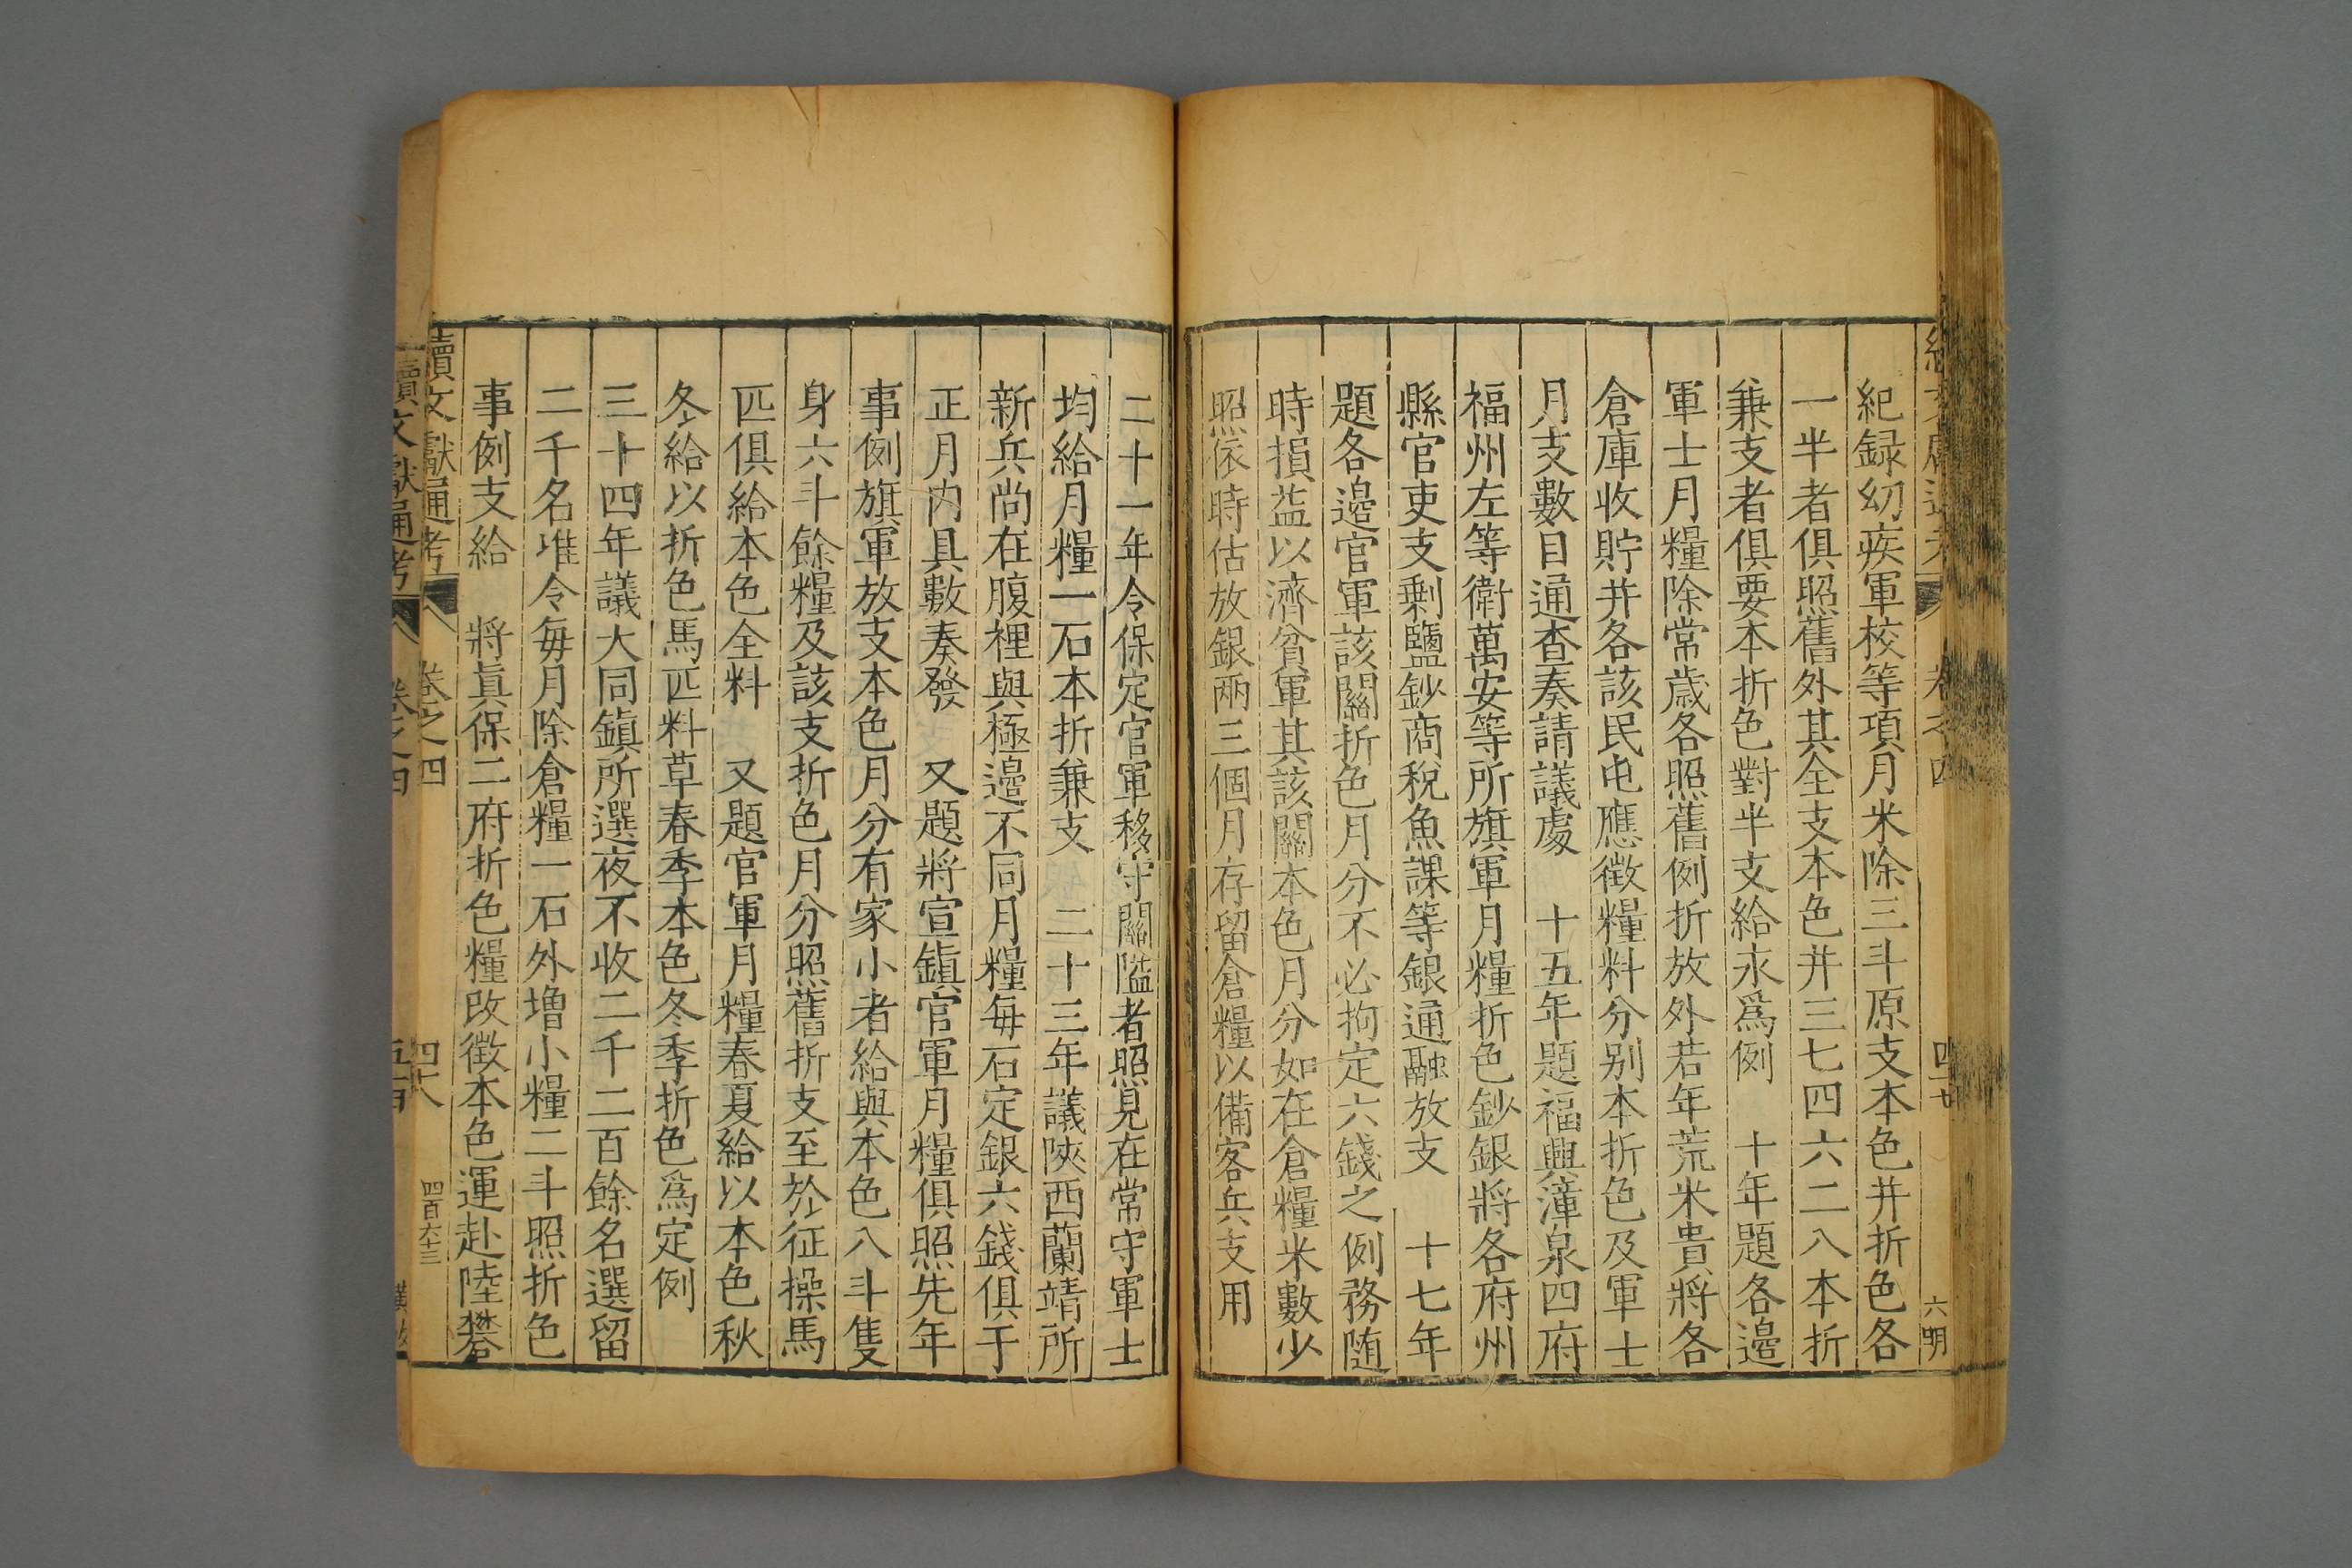 紀録幼疾軍校等項月米除三斗原支本色并折色各
一半者俱照舊外其全支本色并三七四六二八本折
兼支者俱要本折色對半支給永爲例　十年題各邉
軍士月糧除常歲各照舊例折放外若年荒米貴將各
倉庫收貯并各該民屯應徵糧料分别本折色及軍士
月支數目通查奏請議處　十五年題福興漳泉四府
福州左等衛萬安等所旗軍月糧折色鈔銀將各府州
縣官吏支剩鹽鈔商稅魚課等銀通融放支　十七年
題各邉官軍該關折色月分不必拘定六錢之例務随
時損益以濟貧軍其該關本色月分如在倉糧米數少
照依時估放銀兩三個月存留倉糧以備客兵支用
二十一年令保定官軍移守關隘者照見在常守軍士
均給月糧一石本折兼支　二十三年議陝西蘭靖所
新兵尚在腹裡與極邉不同月糧每石定銀六錢俱于
正月内具數奏發　又題將宣鎮官軍月糧俱照先年
事例旗軍放支本色月分有家小者給與本色八斗隻
身六斗餘糧及該支折色月分照舊折支至於征操馬
匹俱給本色全料　又題官軍月糧春夏給以本色秋
冬給以折色馬匹料草春季本色冬季折色爲定例
三十四年議大同鎮所選夜不收二千二百餘名選留
二千名准令每月除倉糧一石外增小糧二斗照折色
事例支給　將眞保二府折色糧改徵本色運赴陸礬
續文獻通考　卷之四　四十八　四百六十三
續文獻通考　卷之四